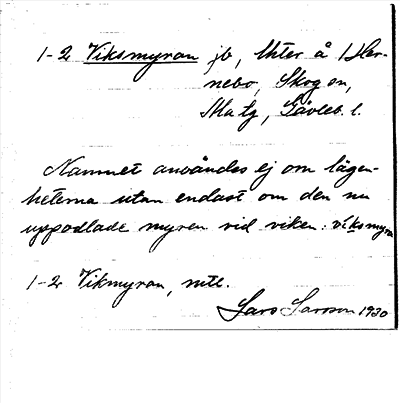 1-2 Viksmyran jb, Uter å 1 Her-
nebo, Skog sn,
Matg, Gävleb. l.
Namnet användes ej om lägen-
heterna utan endast om den nu
uppodlade myren vid viken: viksmyra
1-2 Vikmyran, mtl.
Lars Larsson 1930